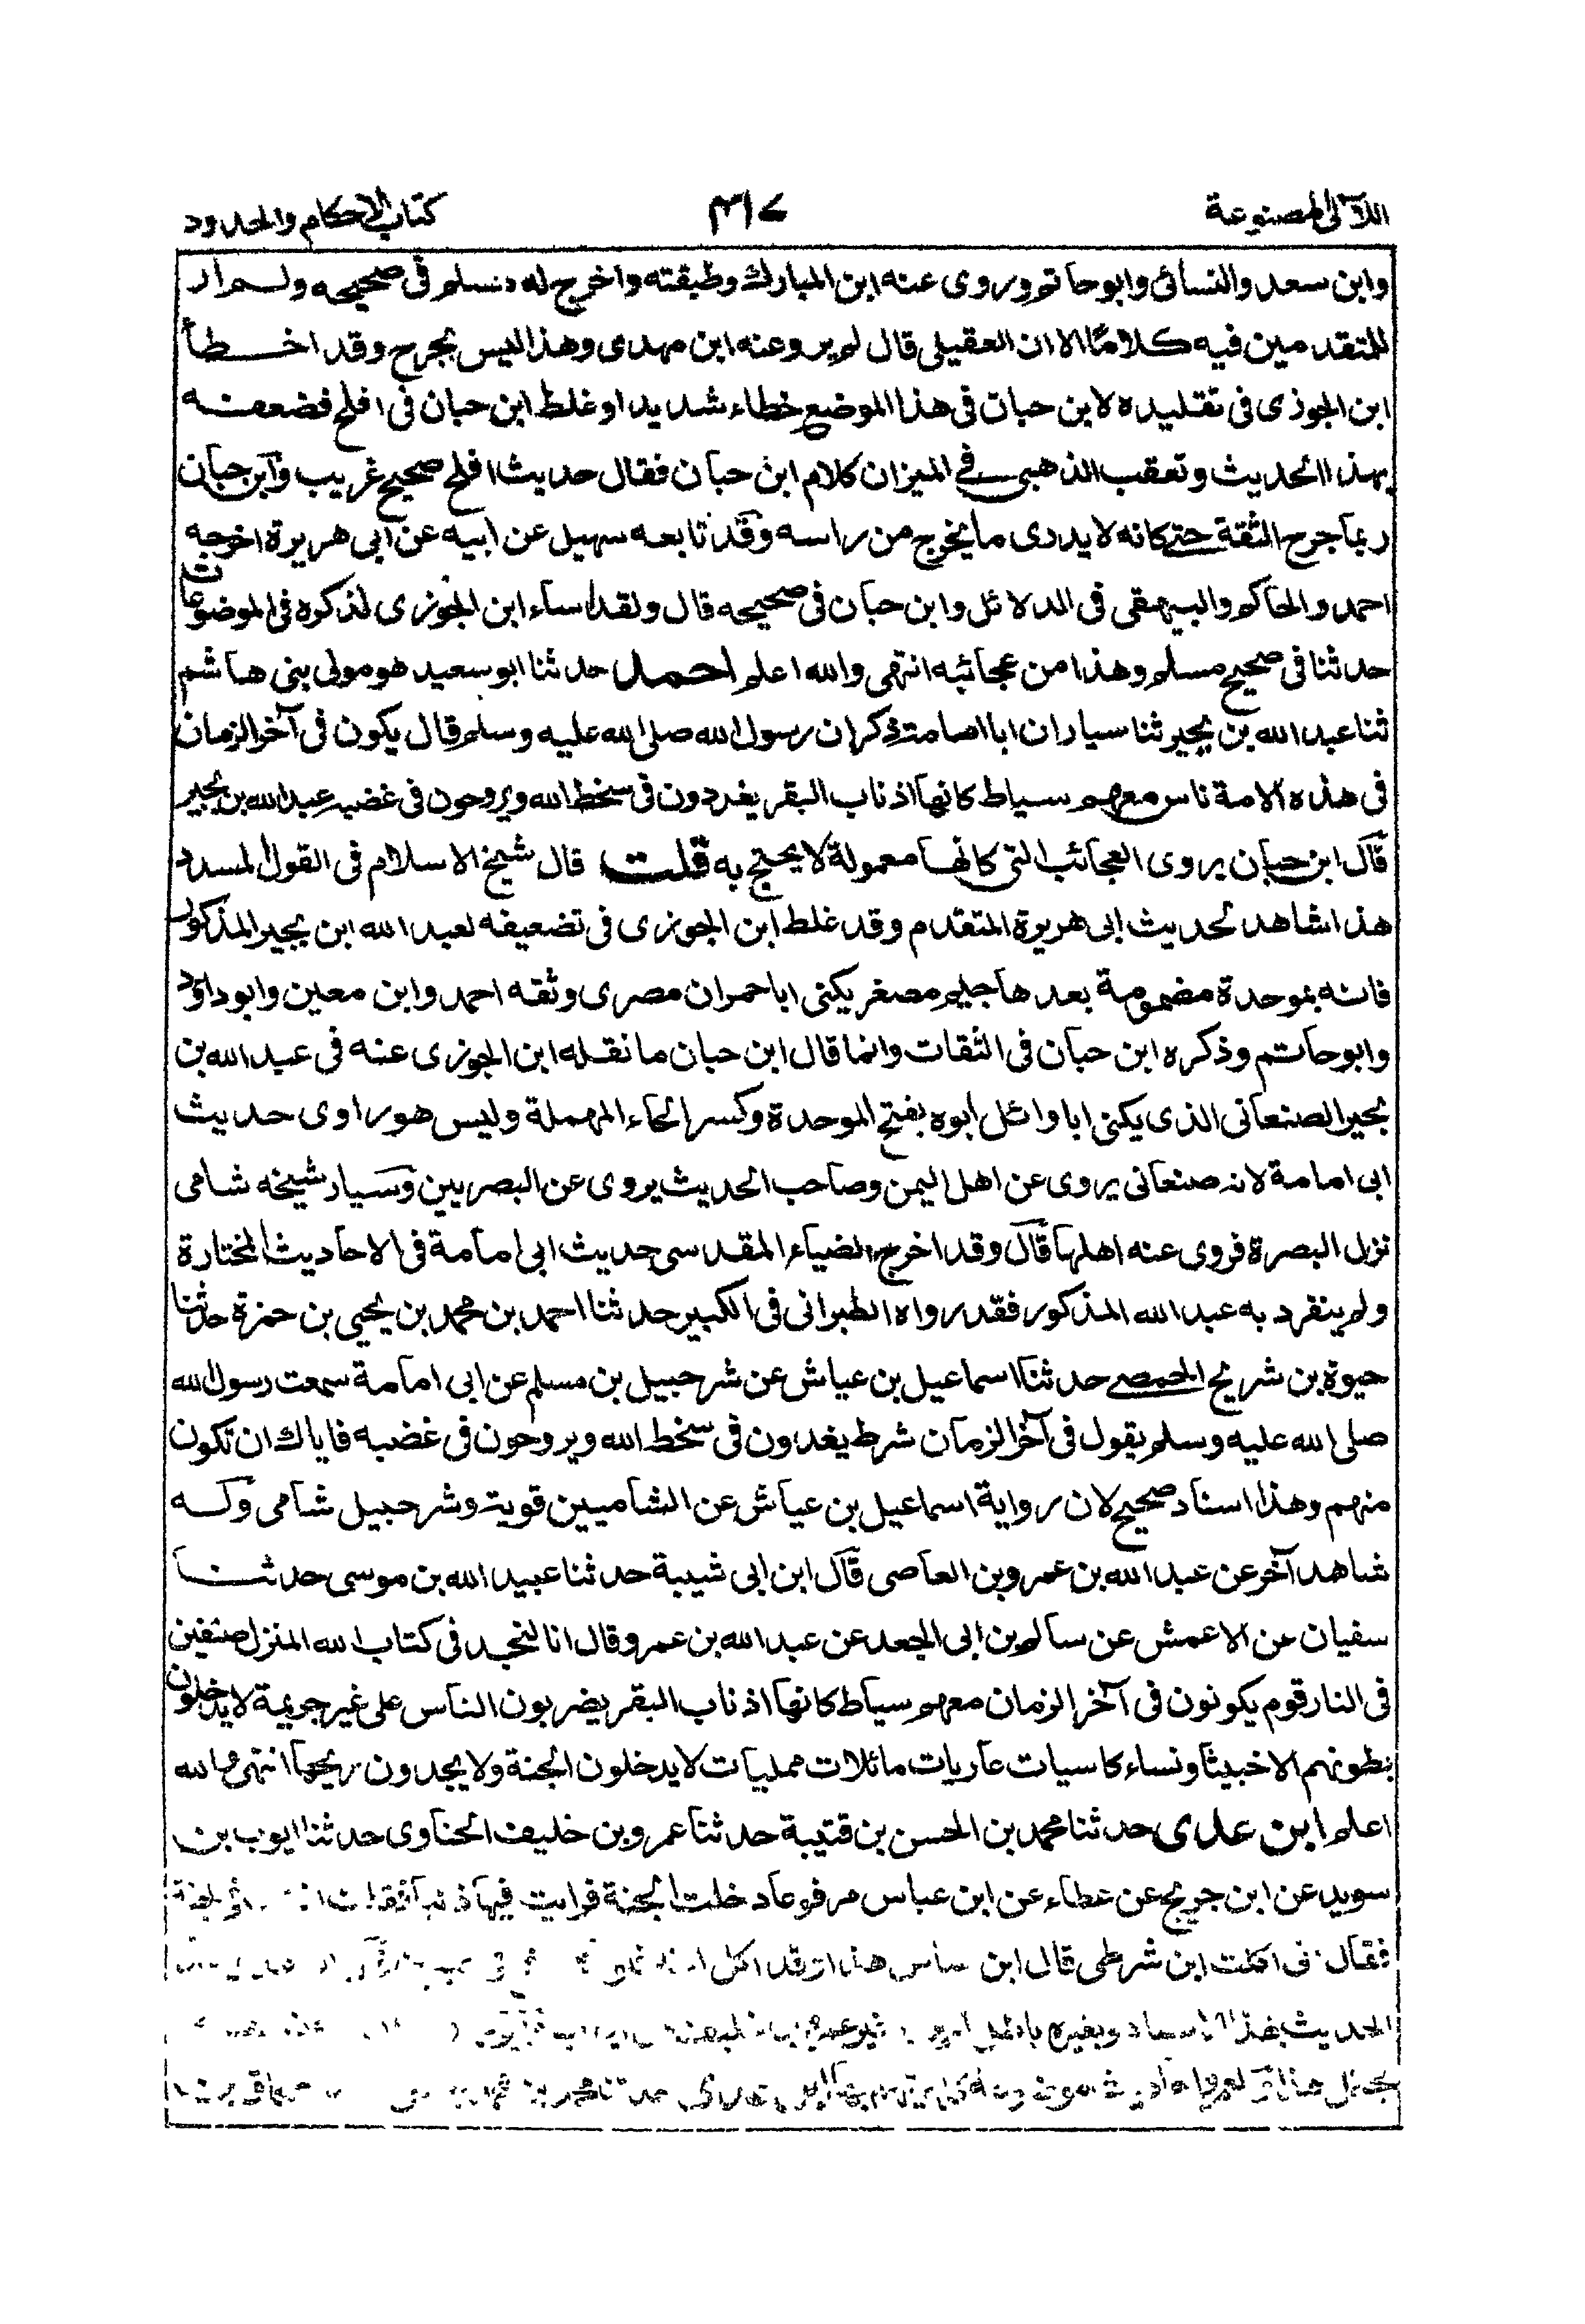 اللآلى المصنوعة
٣١٧
كتاب الاحكام والحدود
وابن سعد والنسائى وابوحاتم وروى عنه ابن المبارك وطبقته واخرج له مسلم فى صحيحه ولم ار
للمتقدمين فيه كلامًا الا ان العقيلى قال لم يرو عنه ابن مهدى وهذا ليس بجرح وقد اخطأ
ابن الجوزى فى تقليده لابن حبان فى هذا الموضع خطاء شديدا وغلط ابن حبان فى افلح فضعفه
بهذا الحديث وتعقب الذهبى فى الميزان كلام ابن حبان فقال حديث افلح صحيح غريب وابن حبان
ربما جرح الثقة حتى كانه لا يدرى ما يخرج من راسه وقد تابعه سهيل عن ابيه عن ابى هريرة اخرجه
احمد والحاكم والبيهقى فى الدلائل وابن حبان فى صحيحه قال ولقد اساء ابن الجوزى لذكره فى الموضوعات
حدثنا فى صحيح مسلم وهذا من عجائبه انتهى والله اعلم احمد حدثنا ابو سعيد هو مولى بنى هاشم
ثنا عبد الله بن بجير ثنا سيار ان ابا امامة ذكر ان رسول الله صلى الله عليه وسلم قال يكون فى آخر الزمان
فى هذه الامة ناس معهم سياط كانها اذناب البقر يغدون فى سخط الله ويروحون فى غضبه عبد الله بن بجير
قال ابن حبان يروى العجائب التى كانها معمولة لا يحتج به قلت قال شيخ الاسلام فى القول المسدد
هذا شاهد لحديث ابى هريرة المتقدم وقد غلط ابن الجوزى فى تضعيفه لعبد الله ابن بجير المذكور
فانه بموحدة مضمومة بعدها جيم مصغر يكنى ابا حمران مصرى وثقه احمد وابن معين وابو داؤد
وابوحاتم وذكره ابن حبان فى الثقات وانما قال ابن حبان ما نقله ابن الجوزى عنه فى عبد الله بن
بحير الصنعانى الذى يكنى ابا وائل ابوه بفتح الموحدة وكسر الحاء المهملة وليس هو راوى حديث
ابى امامة لانه صنعانى يروى عن اهل اليمن وصاحب الحديث يروى عن البصريين وسيار شيخه شامى
نزل البصرة فروى عنه اهلها قال وقد اخرج الضياء المقدسى حديث ابى امامة فى الاحاديث المختارة
ولم ينفرد به عبد الله المذكور فقد رواه الطبرانى فى الكبير حدثنا احمد بن محمد بن يحيى بن حمزة حدثنا
حيوة بن شريح الحمصى حدثنا اسماعيل بن عياش عن شرحبيل بن مسلم عن ابى امامة سمعت رسول الله
صلى الله عليه وسلم يقول فى آخر الزمان شرط يغدون فى سخط الله ويروحون فى غضبه فاياك ان تكون
منهم وهذا اسناد صحيح لان رواية اسماعيل بن عياش عن الشاميين قوية وشرحبيل شامى وله
شاهد آخر عن عبد الله بن عمرو بن العاصى قال ابن ابى شيبة حدثنا عبيد الله بن موسى حدثنا
سفيان عن الاعمش عن سالم بن ابى الجعد عن عبد الله بن عمرو قال انا لنجد فى كتاب الله المنزل صنفين
فى النار قوم يكونون فى آخر الزمان معهم سياط كانها اذناب البقر يضربون الناس على غير جريمة لا يدخلون
بطونهم الا خبيثا ونساء كاسيات عاريات مائلات مميلات لا يدخلون الجنة ولا يجدون ريحها انتهى والله
اعلم ابن عدى حدثنا محمد بن الحسن بن قتيبة حدثنا عمرو بن خليف الحناوى حدثنا ايوب بن
سويد عن ابن جريج عن عطاء عن ابن عباس مرفوعا دخلت الجنة فرايت فيها ذئبا فقلت
فقال اكلت ابن شرطى قال ابن عباس هذا وقد اكل
الحديث بهذا الاسناد وبغيره